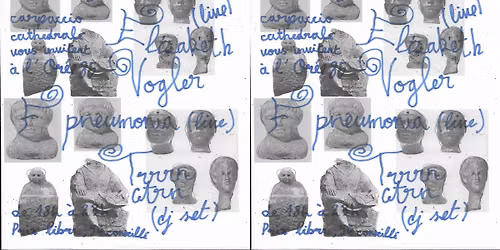 carpaccio
cathédrale
vous invitent
à l'Oréze
(live)
Elizabeth
Vogler
pneumonia (live)
Tarrn
(dj set)
Prix libre conseillé
carpaccio
cathédrale
vous invitent
à l'Oréze
(live)
Elizabeth
Vogler
pneumonia (live)
(dj set)
Prix libre conseillé